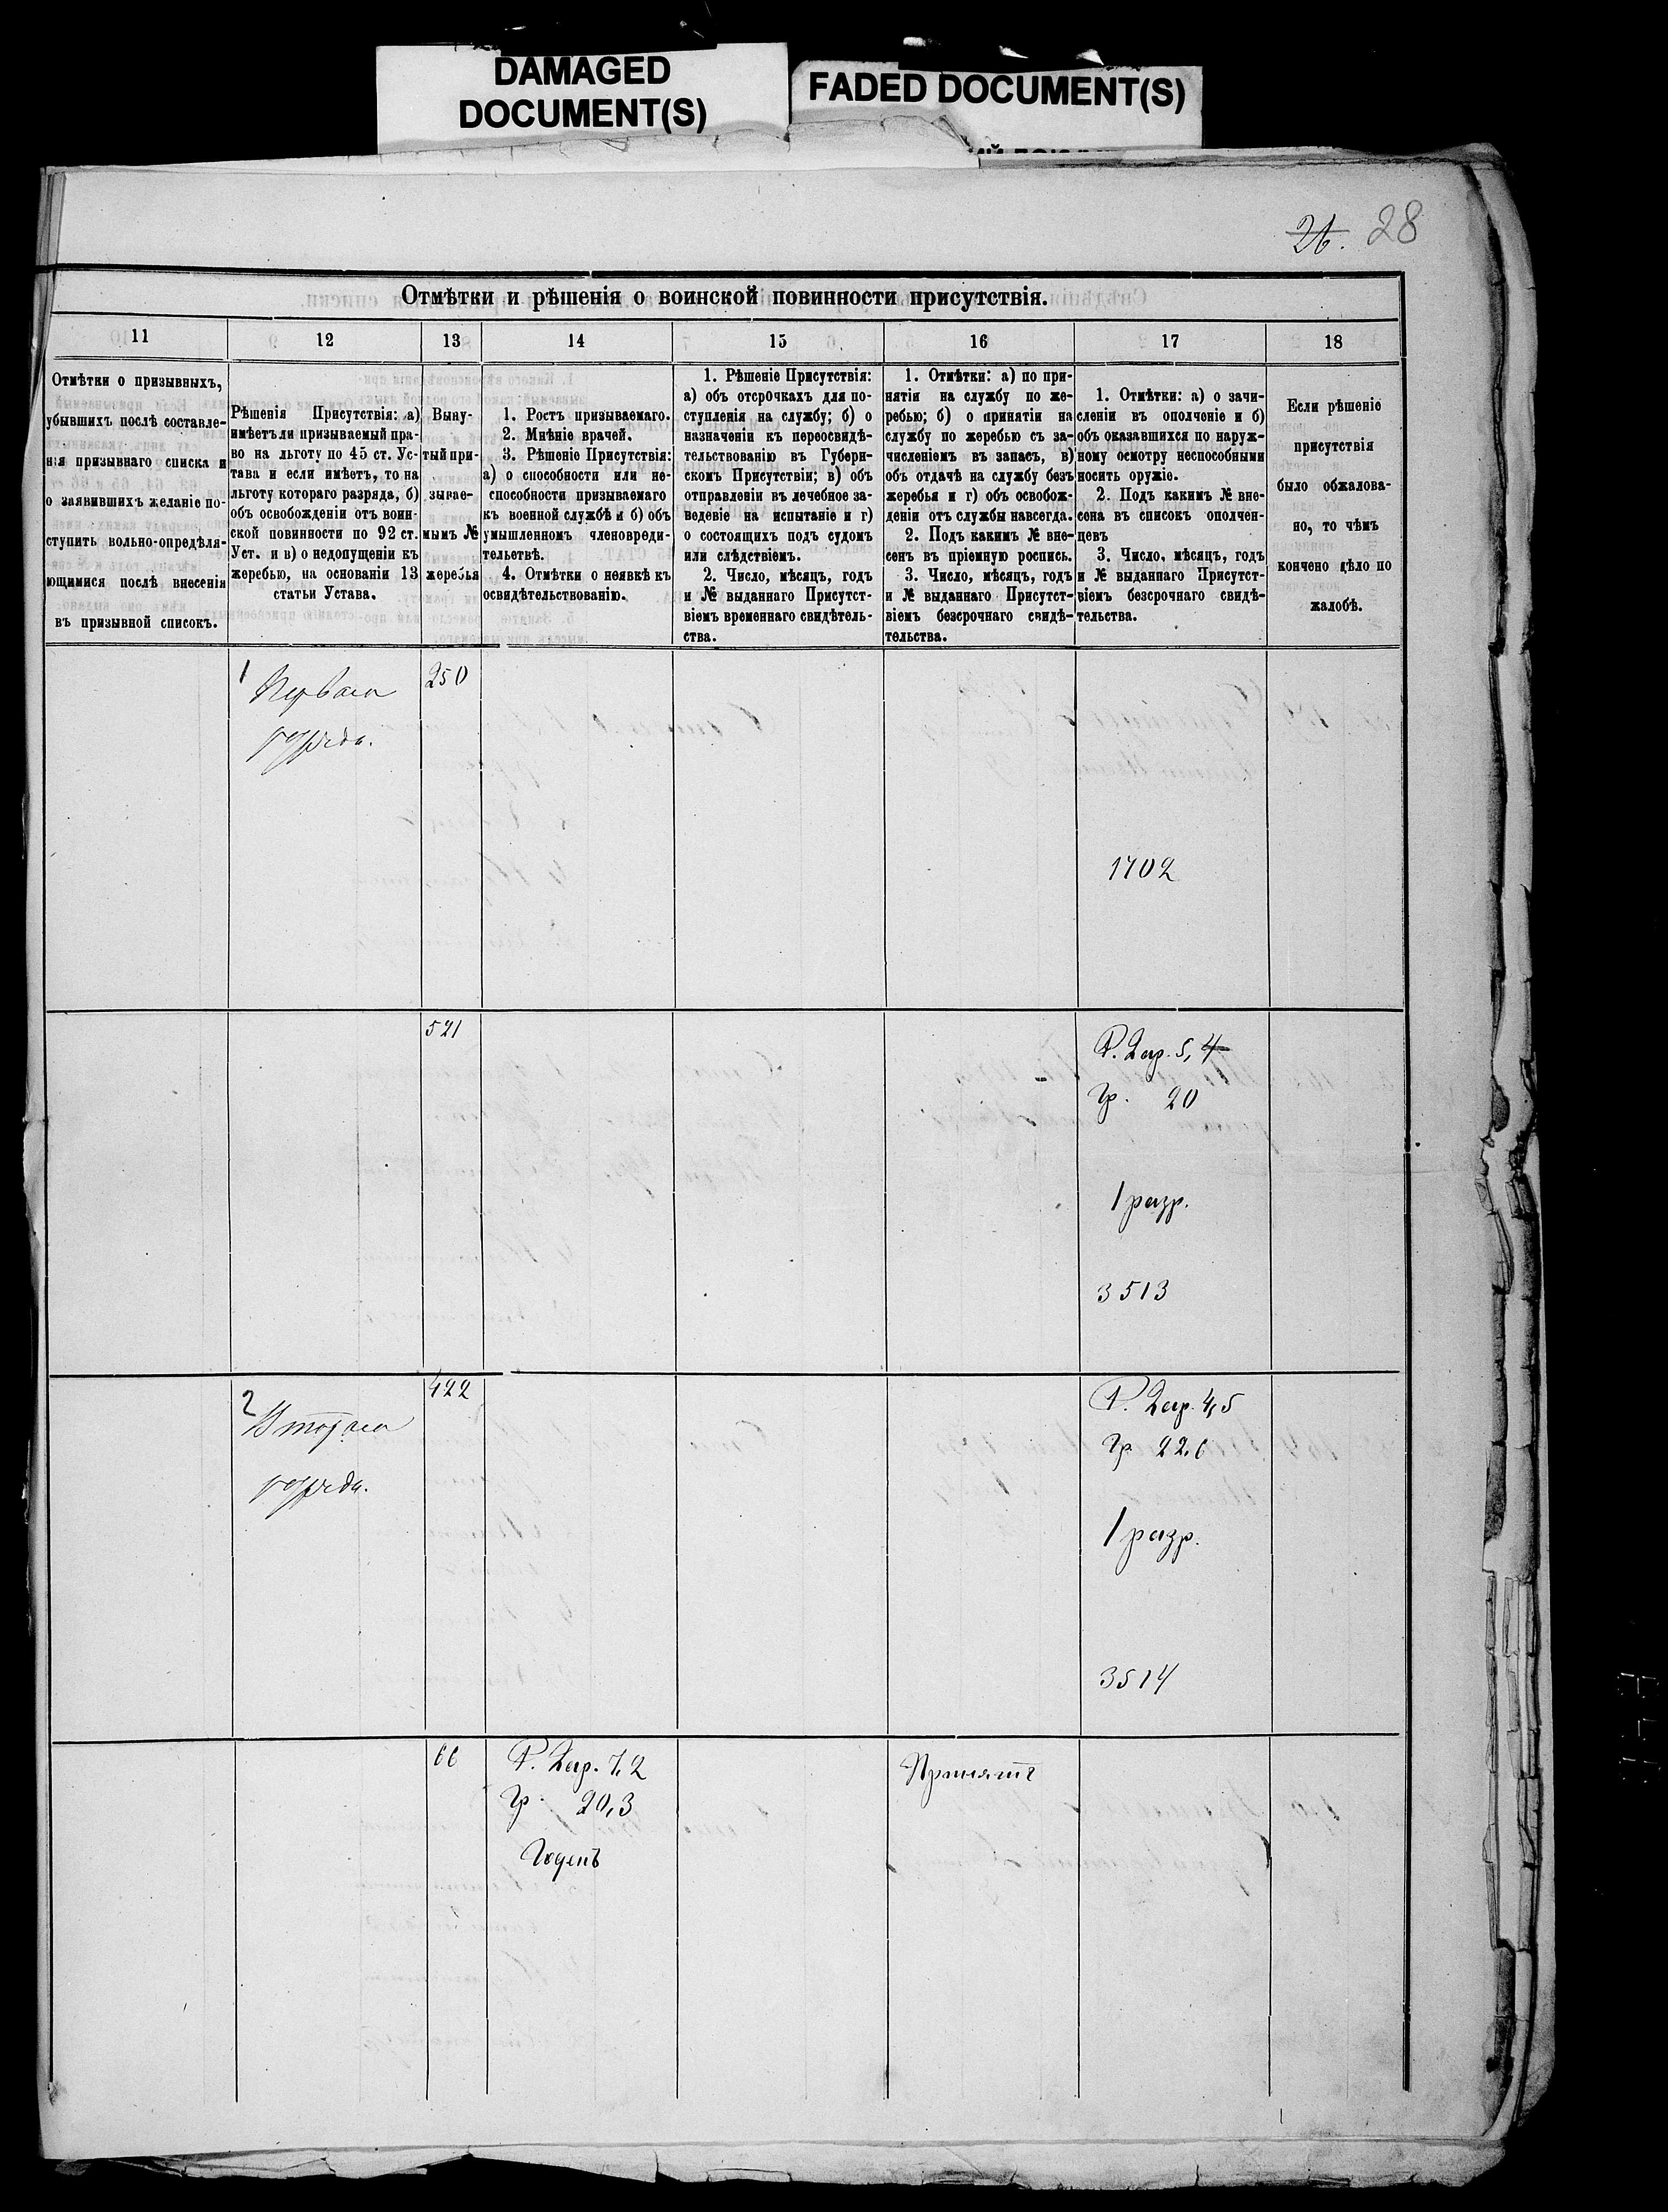 DAMAGED
DOCUMENT(S)
FADED DOCUMENT(S)
26. 28
Отмѣтки и рѣшенія о воинской повинности присутствія.
11 12 13 14 15 16 17 18
Отмѣтки о призывныхъ,
убывшихъ послѣ составле-
нія призывнаго списка и
о заявившихъ желаніе по-
ступить вольно-опредѣля-
ющимися послѣ внесенія
въ призывной списокъ.
Рѣшенія Присутствія: а)
имѣетъ ли призываемый пра-
во на льготу по 45 ст. Ус-
тава и если имѣетъ, то на
льготу котораго разряда, б)
объ освобожденіи отъ воин-
ской повинности по 92 ст.
Уст. и в) о недопущеніи къ
жеребью, на основаніи 13
статьи Устава.
Выну-
тый при-
зывае-
мымъ №
жеребья
1. Ростъ призываемаго.
2. Мнѣніе врачей.
3. Рѣшеніе Присутствія:
а) о способности или не-
способности призываемаго
къ военной службѣ и б) объ
умышленномъ членовреди-
тельствѣ.
4. Отмѣтки о неявкѣ къ
освидѣтельствованію.
1. Рѣшеніе Присутствія:
а) объ отсрочкахъ для по-
ступленія на службу; б) о
назначеніи къ переосвидѣ-
тельствованію въ Губерн-
скомъ Присутствіи; в) объ
отправленіи въ лечебное за-
веденіе на испытаніе и г)
о состоящихъ подъ судомъ
или слѣдствіемъ.
2. Число, мѣсяцъ, годъ
и № выданнаго Присутст-
віемъ временнаго свидѣтель-
ства.
1. Отмѣтки: а) по при-
нятіи на службу по же-
ребью; б) о принятіи на
службу по жеребью съ за-
численіемъ въ запасъ, в)
объ отдачѣ на службу безъ
жеребья и г) объ освобож-
деніи отъ службы навсегда.
2. Подъ какимъ № вне-
сенъ въ пріемную роспись.
3. Число, мѣсяцъ, годъ
и № выданнаго Присутст-
віемъ безсрочнаго свидѣ-
тельства.
1. Отмѣтки: а) о зачи-
сленіи въ ополченіе и б)
объ оказавшихся по наруж-
ному осмотру неспособными
носить оружіе.
2. Подъ какимъ № вне-
сена въ списокъ ополчен-
цевъ
3. Число, мѣсяцъ, годъ
и № выданнаго Присутст-
віемъ безсрочнаго свидѣ-
тельства.
Если рѣшеніе
присутствія
было обжалова-
но, то чѣмъ
кончено дѣло по
жалобѣ.
1 Перваго
разряда.
250
1702
521
Р. 2 ар. 5, 4
Гр. 20
1 разр.
3513
2 Втораго
разряда.
422
Р. 2 ар. 4,5
Гр 22,6
1 разр.
3514
66
Р. 2 ар. 7,2
Гр. 20,3
Годенъ
Принятъ